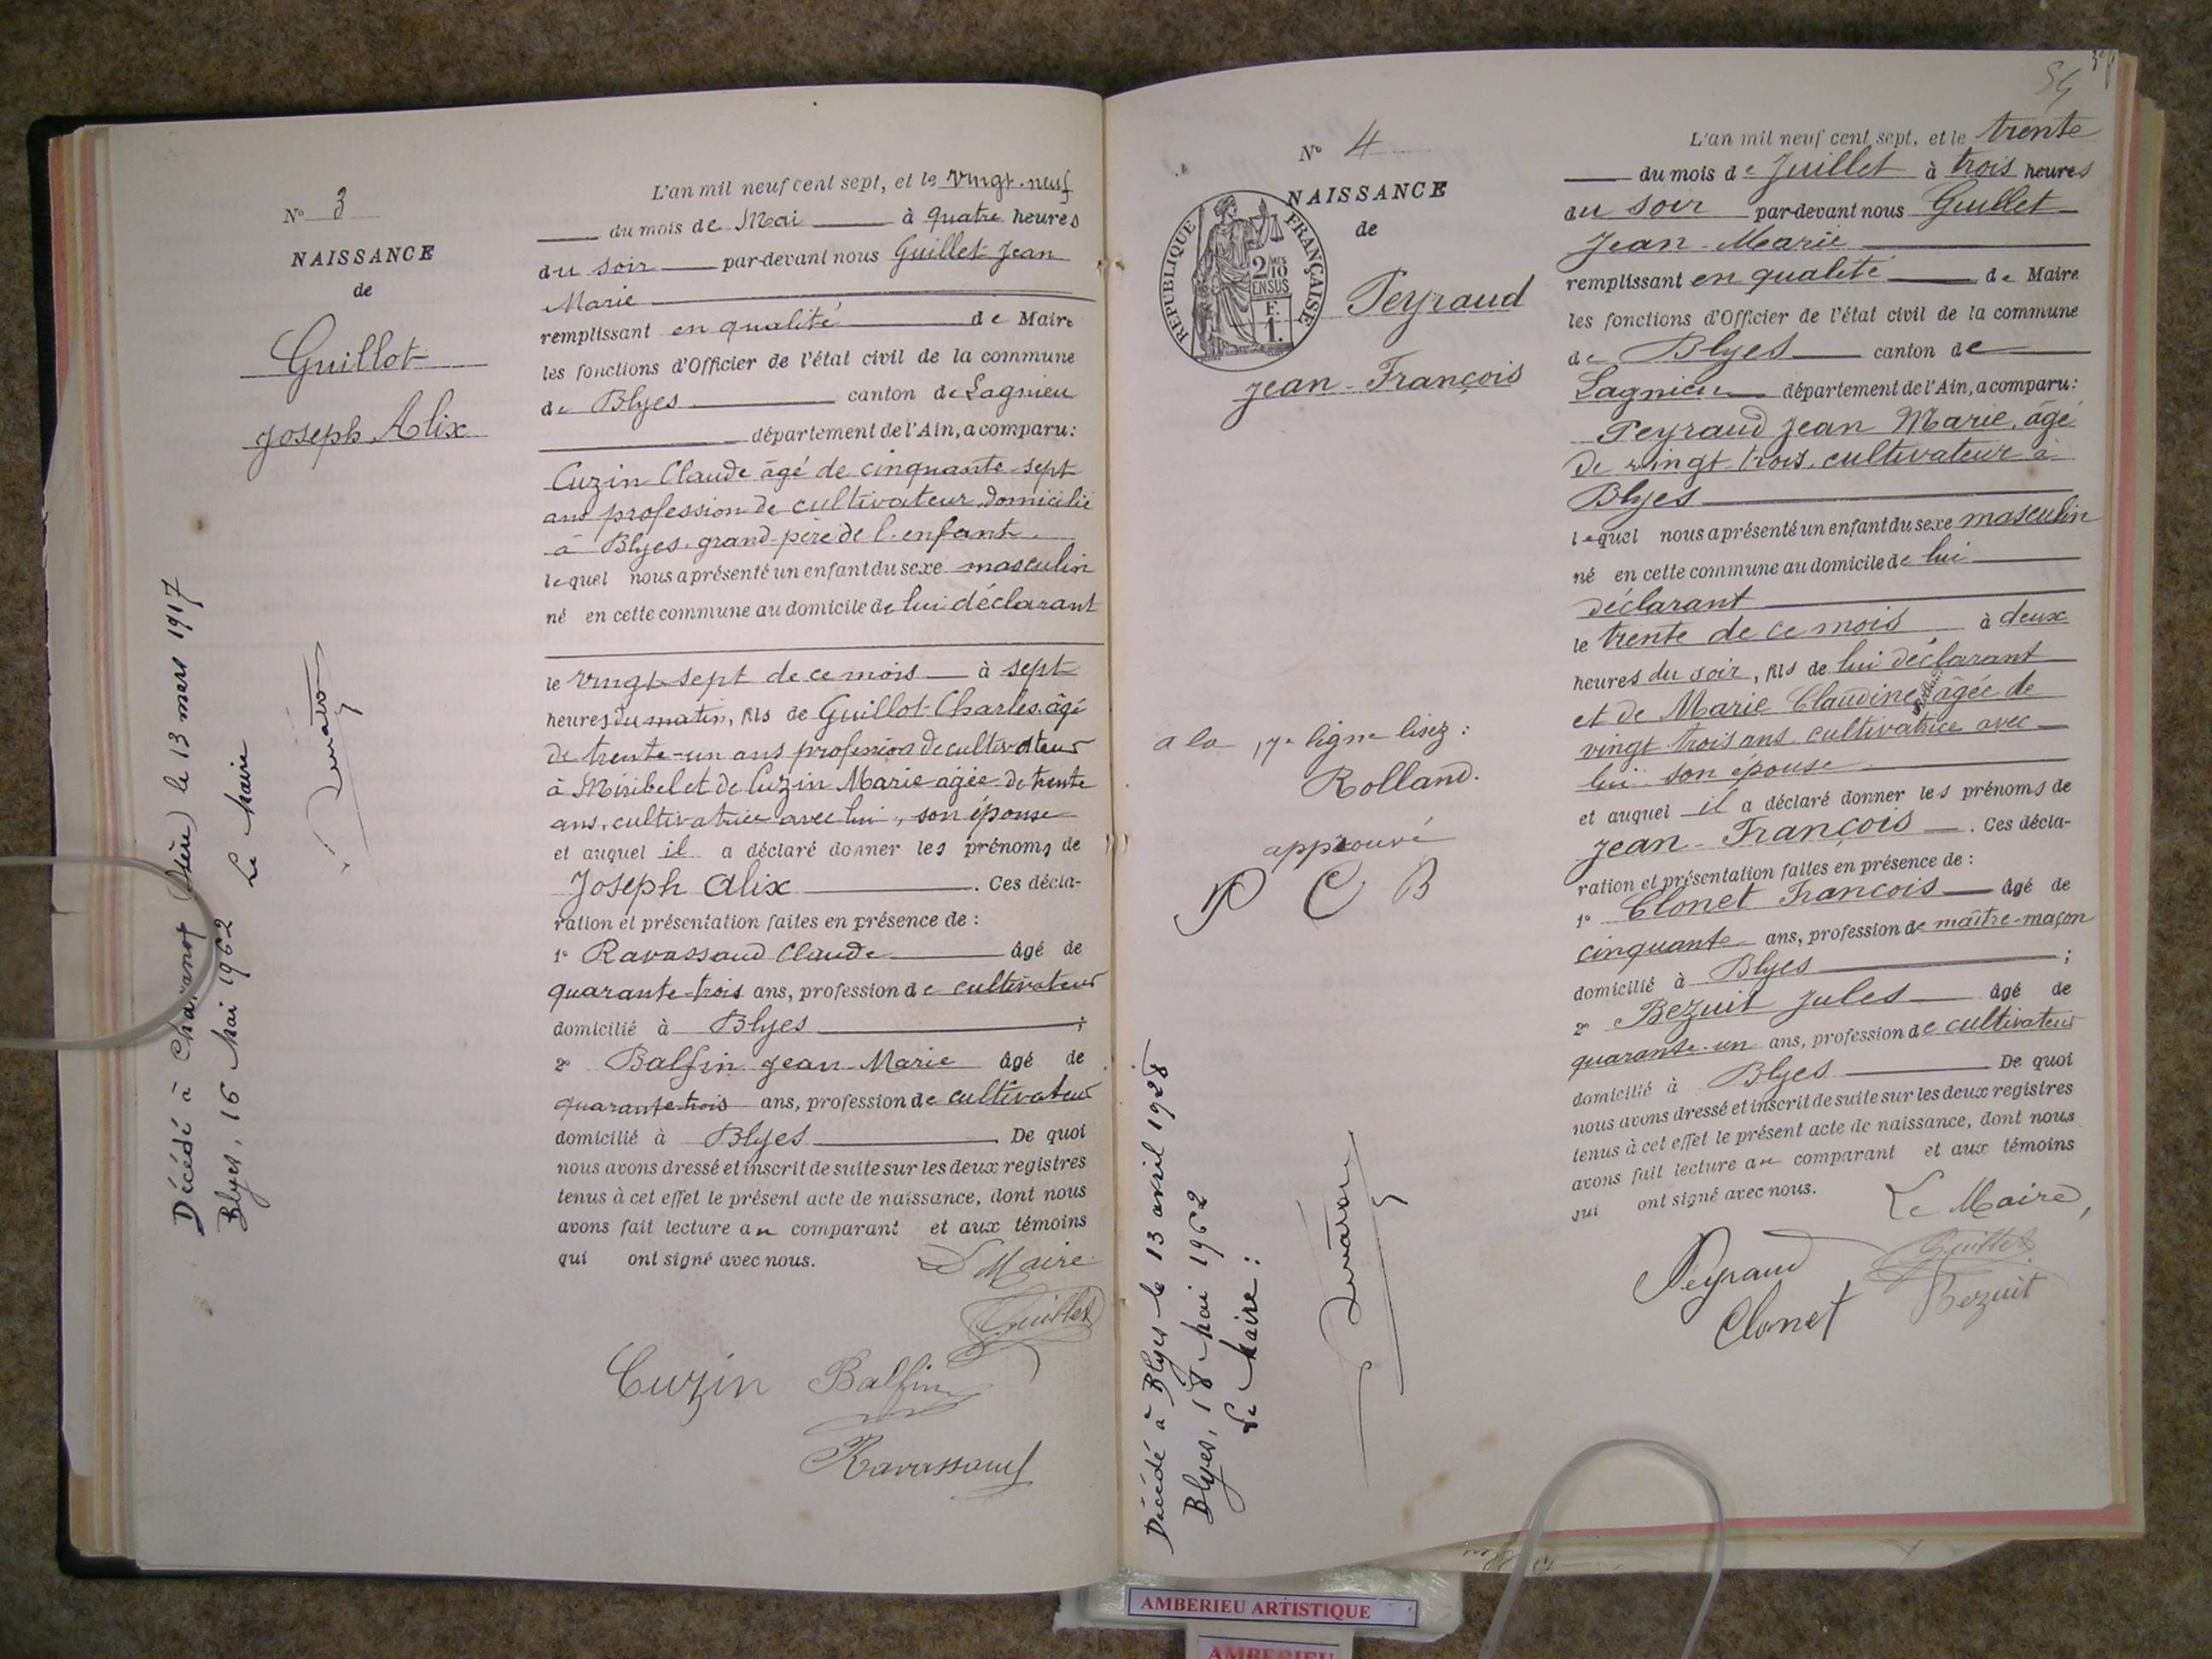 Nº 3
NAISSANCE
de
Guillot
Joseph Alix
Décédé à Charanoz (Isère) le 13 mars 1917
Blyes, 16 Mai 1962 Le Maire
L'an mil neuf cent sept, et le vingt-neuf
du mois de Mai à quatre heures
du soir par-devant nous Guillet Jean
Marie
remplissant en qualité de Maire
les fonctions d'Officier de l'état civil de la commune
de Blyes canton de Lagnieu
département de l'Ain, a comparu:
Cuzin Claude âgé de cinquante-sept
ans profession de cultivateur, domicilié
à Blyes, grand-père de l'enfant.
lequel nous a présenté un enfant du sexe masculin
né en cette commune au domicile de lui déclarant
le vingt-sept de ce mois à sept
heures du matin, fils de Guillot Charles âgé
de trente-un ans profession de cultivateur
à Miribel et de Cuzin Marie agée de trente
ans, cultivatrice avec lui, son épouse
et auquel il a déclaré donner les prénoms de
Joseph Alix. Ces décla-
ration et présentation faites en présence de :
1º Ravassoud Claude âgé de
quarante-trois ans, profession de cultivateur
domicilié à Blyes ;
2º Balfin Jean-Marie âgé de
quarante-trois ans, profession de cultivateur
domicilié à Blyes. De quoi
nous avons dressé et inscrit de suite sur les deux registres
tenus à cet effet le présent acte de naissance, dont nous
avons fait lecture au comparant et aux témoins
qui ont signé avec nous. Le Maire
Guillet
Cuzin Balfin
Ravassoud
54
Nº 4
NAISSANCE
de
RÉPUBLIQUE FRANÇAISE
2/10 MES
EN SUS
F.
1.
Peyraud
Jean-François
a la 17e ligne lisez :
Rolland.
approuvé
P C B
Décédé à Blyes le 13 avril 1928
Blyes, 18 Mai 1962
Le Maire :
L'an mil neuf cent sept, et le trente
du mois de Juillet à trois heures
du soir par-devant nous Guillet
Jean-Marie
remplissant en qualité de Maire
les fonctions d'Officier de l'état civil de la commune
de Blyes canton de
Lagnieu département de l'Ain, a comparu:
Peyraud Jean Marie, âgé
de vingt trois, cultivateur à
Blyes
lequel nous a présenté un enfant du sexe masculin
né en cette commune au domicile de lui
déclarant
le trente de ce mois à deux
heures du soir, fils de lui déclarant
et de Marie Claudine âgée de
vingt-trois ans cultivatrice avec
lui son épouse
et auquel il a déclaré donner les prénoms de
Jean-François. Ces décla-
ration et présentation faites en présence de :
1º Clonet Francois âgé de
cinquante ans, profession de maître-maçon
domicilié à Blyes ;
2º Bezuit Jules âgé de
quarante-un ans, profession de cultivateur
domicilié à Blyes De quoi
nous avons dressé et inscrit de suite sur les deux registres
tenus à cet effet le présent acte de naissance, dont nous
avons fait lecture au comparant et aux témoins
qui ont signé avec nous. Le Maire,
Peyraud Guillet
Clonet Bezuit
AMBERIEU ARTISTIQUE
AMBERIEU